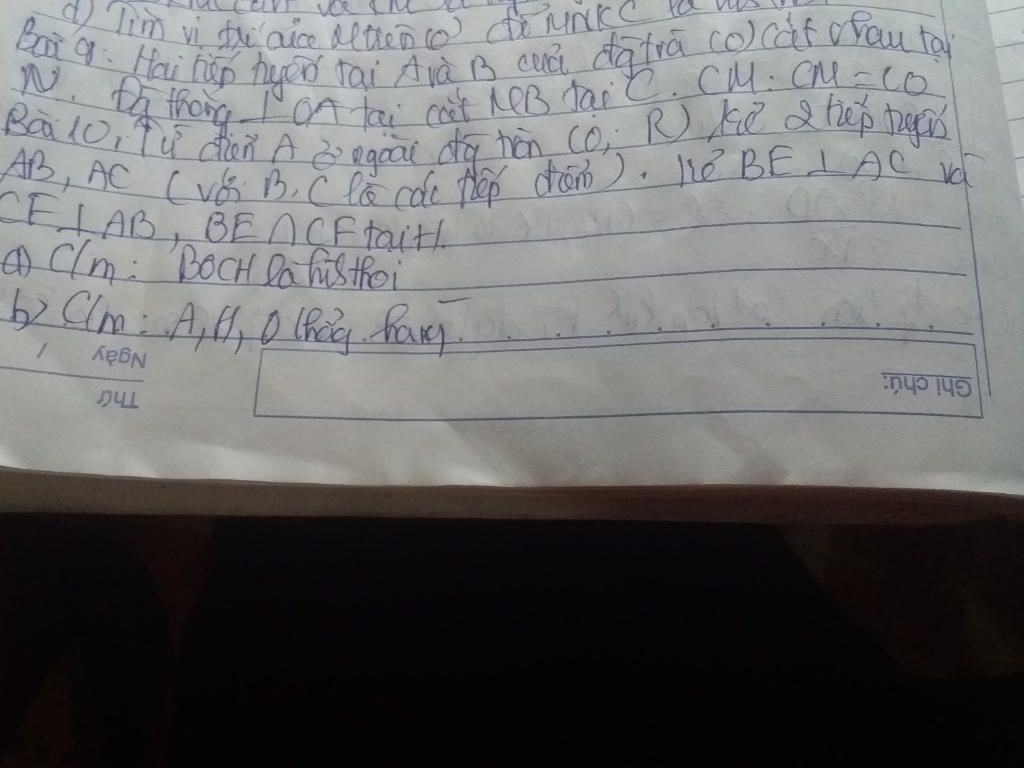 d) Tìm vị trí của M trên (O) để MNKC là
Bài 9: Hai tiếp tuyến tại A và B của đg trò (O) cắt nhau tại
M. Đg thẳng ⊥ OA tại cắt MB tại C. CM: CM = CO
Bài 10: Từ điểm A ở ngoài đg tròn (O; R) kẻ 2 tiếp tuyến
AB, AC (với B, C là các tiếp điểm). Kẻ BE ⊥ AC và
CF ⊥ AB, BE ∩ CF tại H.
a) C/m: BOCH là hình thoi
b) C/m: A, H, O thẳng hàng
Ghi chú:
Ngày /
Thứ